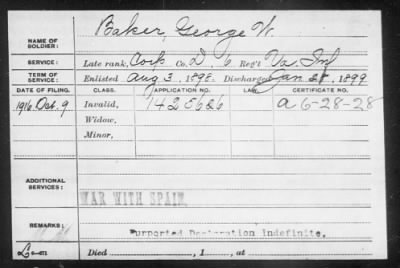 NAME OF SOLDIER: Baker, George W.
SERVICE: Late rank, Corp Co. D, 6 Reg't Va. Inf
TERM OF SERVICE: Enlisted Aug 3, 1898. Discharged Jan 28, 1899
DATE OF FILING. CLASS. APPLICATION NO. LAW. CERTIFICATE NO.
1916 Oct. 9 Invalid, 1425626 a 6-28-28
Widow,
Minor,
ADDITIONAL SERVICES:
WAR WITH SPAIN.
REMARKS:
Purported Declaration Indefinite.
Died , 1 , at